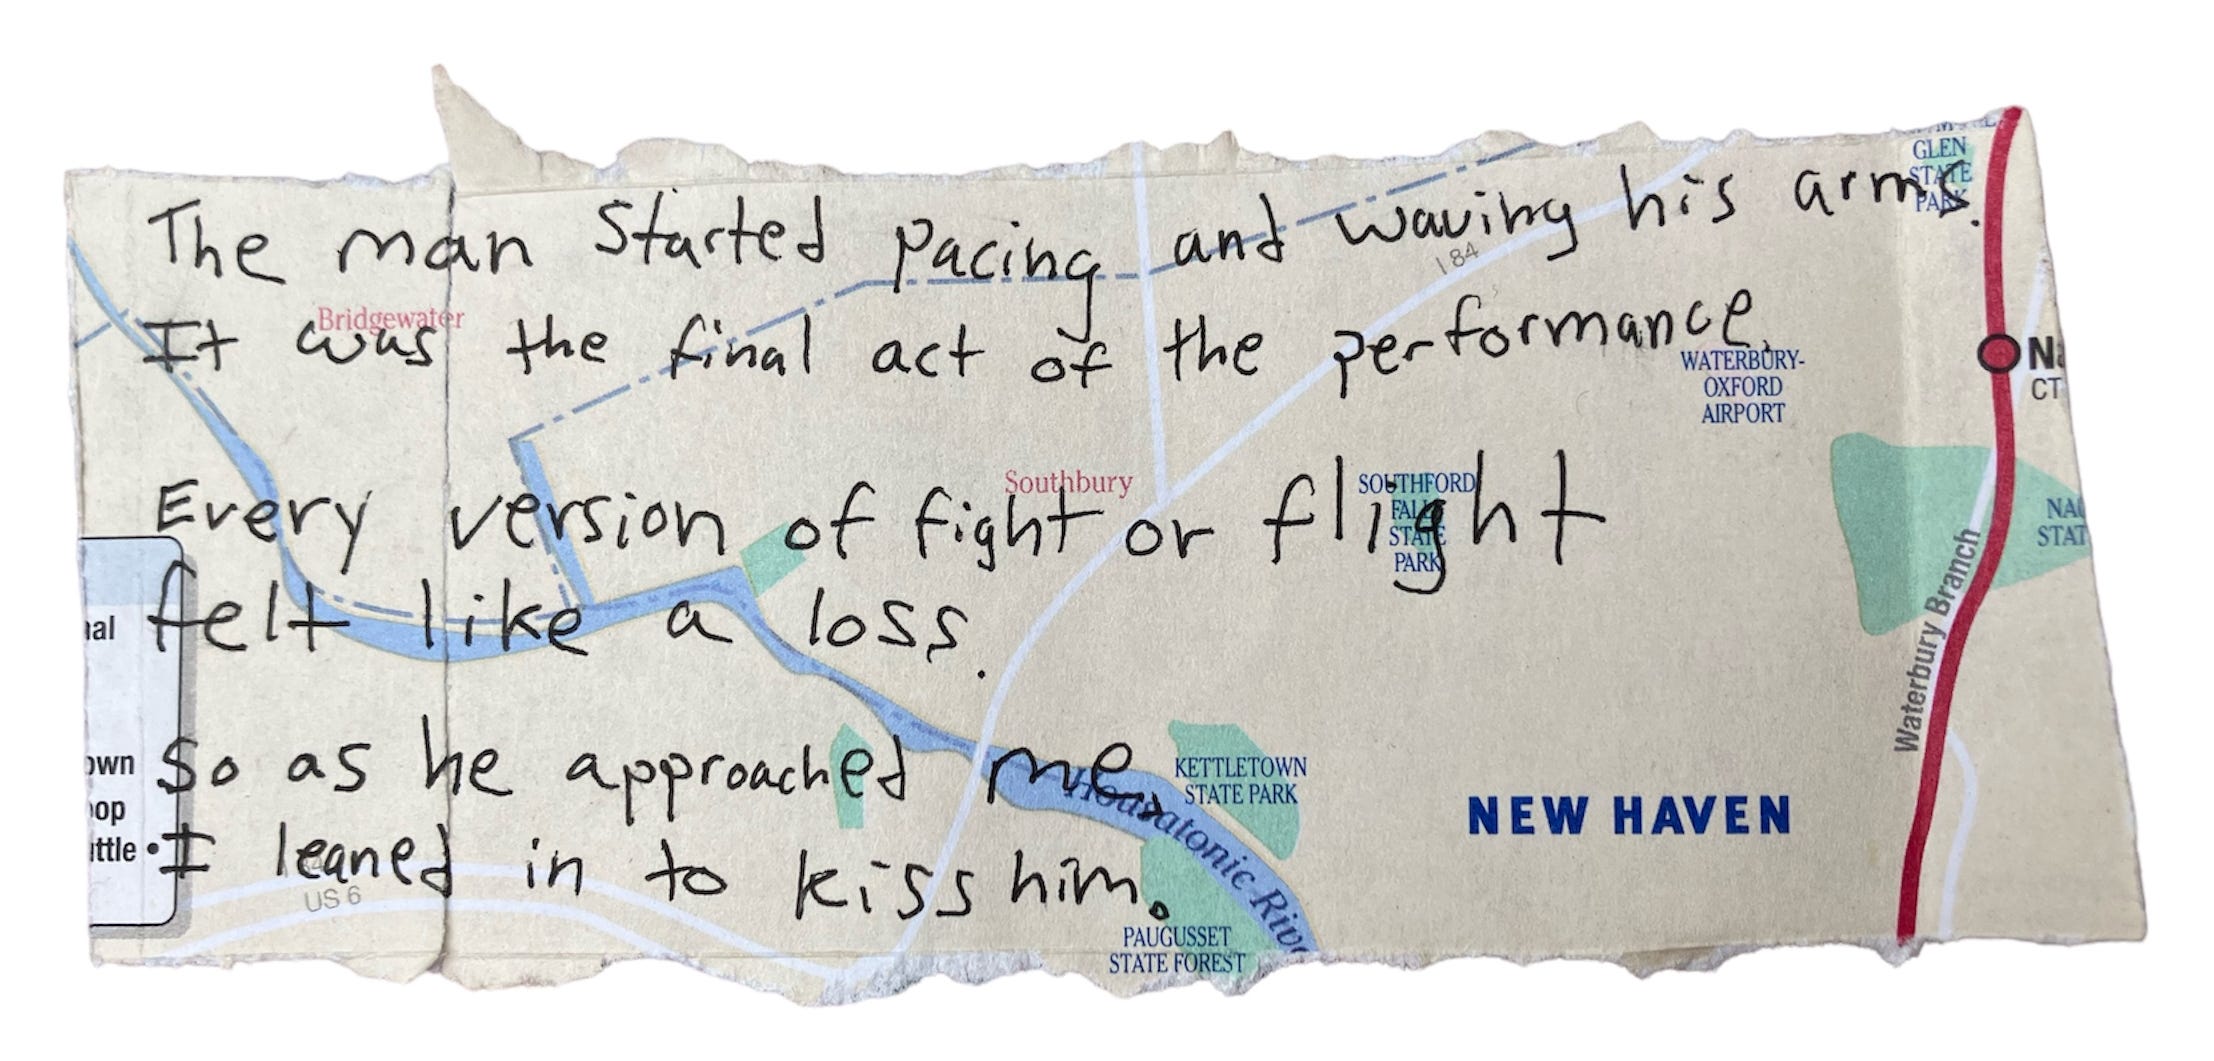 The man started pacing and waving his arms.
It was the final act of the performance.
Every version of fight or flight
felt like a loss.
So as he approached me,
I leaned in to kiss him.
GLEN
STATE
PARK
I 84
Bridgewater
WATERBURY-
OXFORD
AIRPORT
CT
Southbury
SOUTHFORD
FALLS
STATE
PARK
Waterbury Branch
KETTLETOWN
STATE PARK
NEW HAVEN
Housatonic River
US 6
PAUGUSSET
STATE FOREST